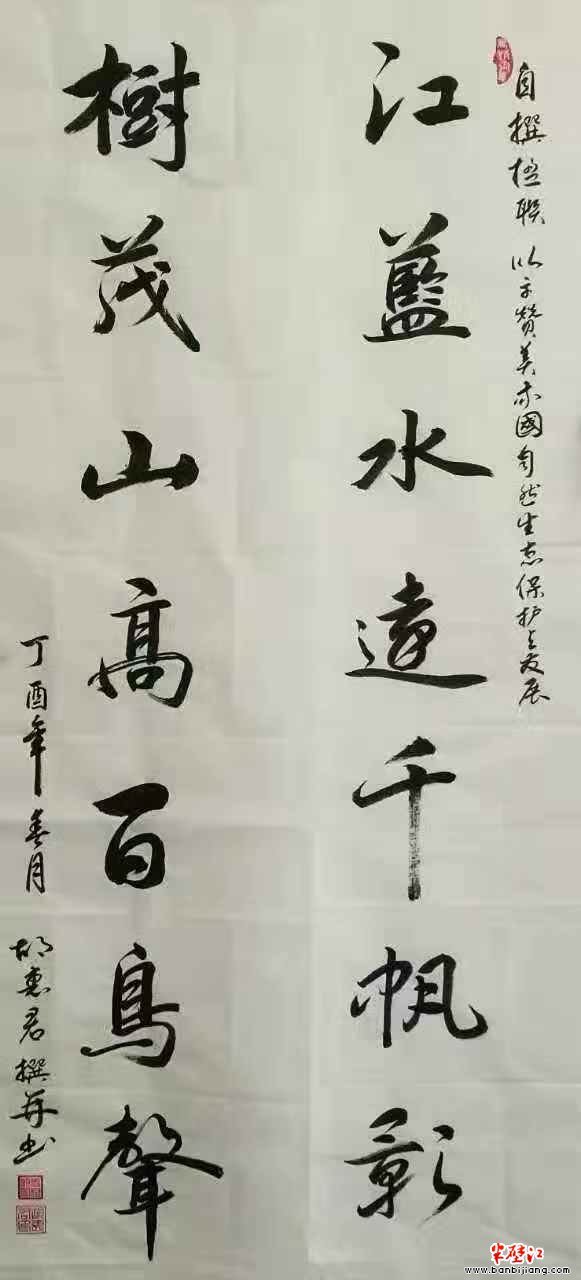 自撰楹联 以示赞美我國自然生态保护与发展
江藍水遠千帆彰
樹茂山高百鳥聲
丁酉年春月
胡惠君撰并书
半壁江
www.banbijiang.com